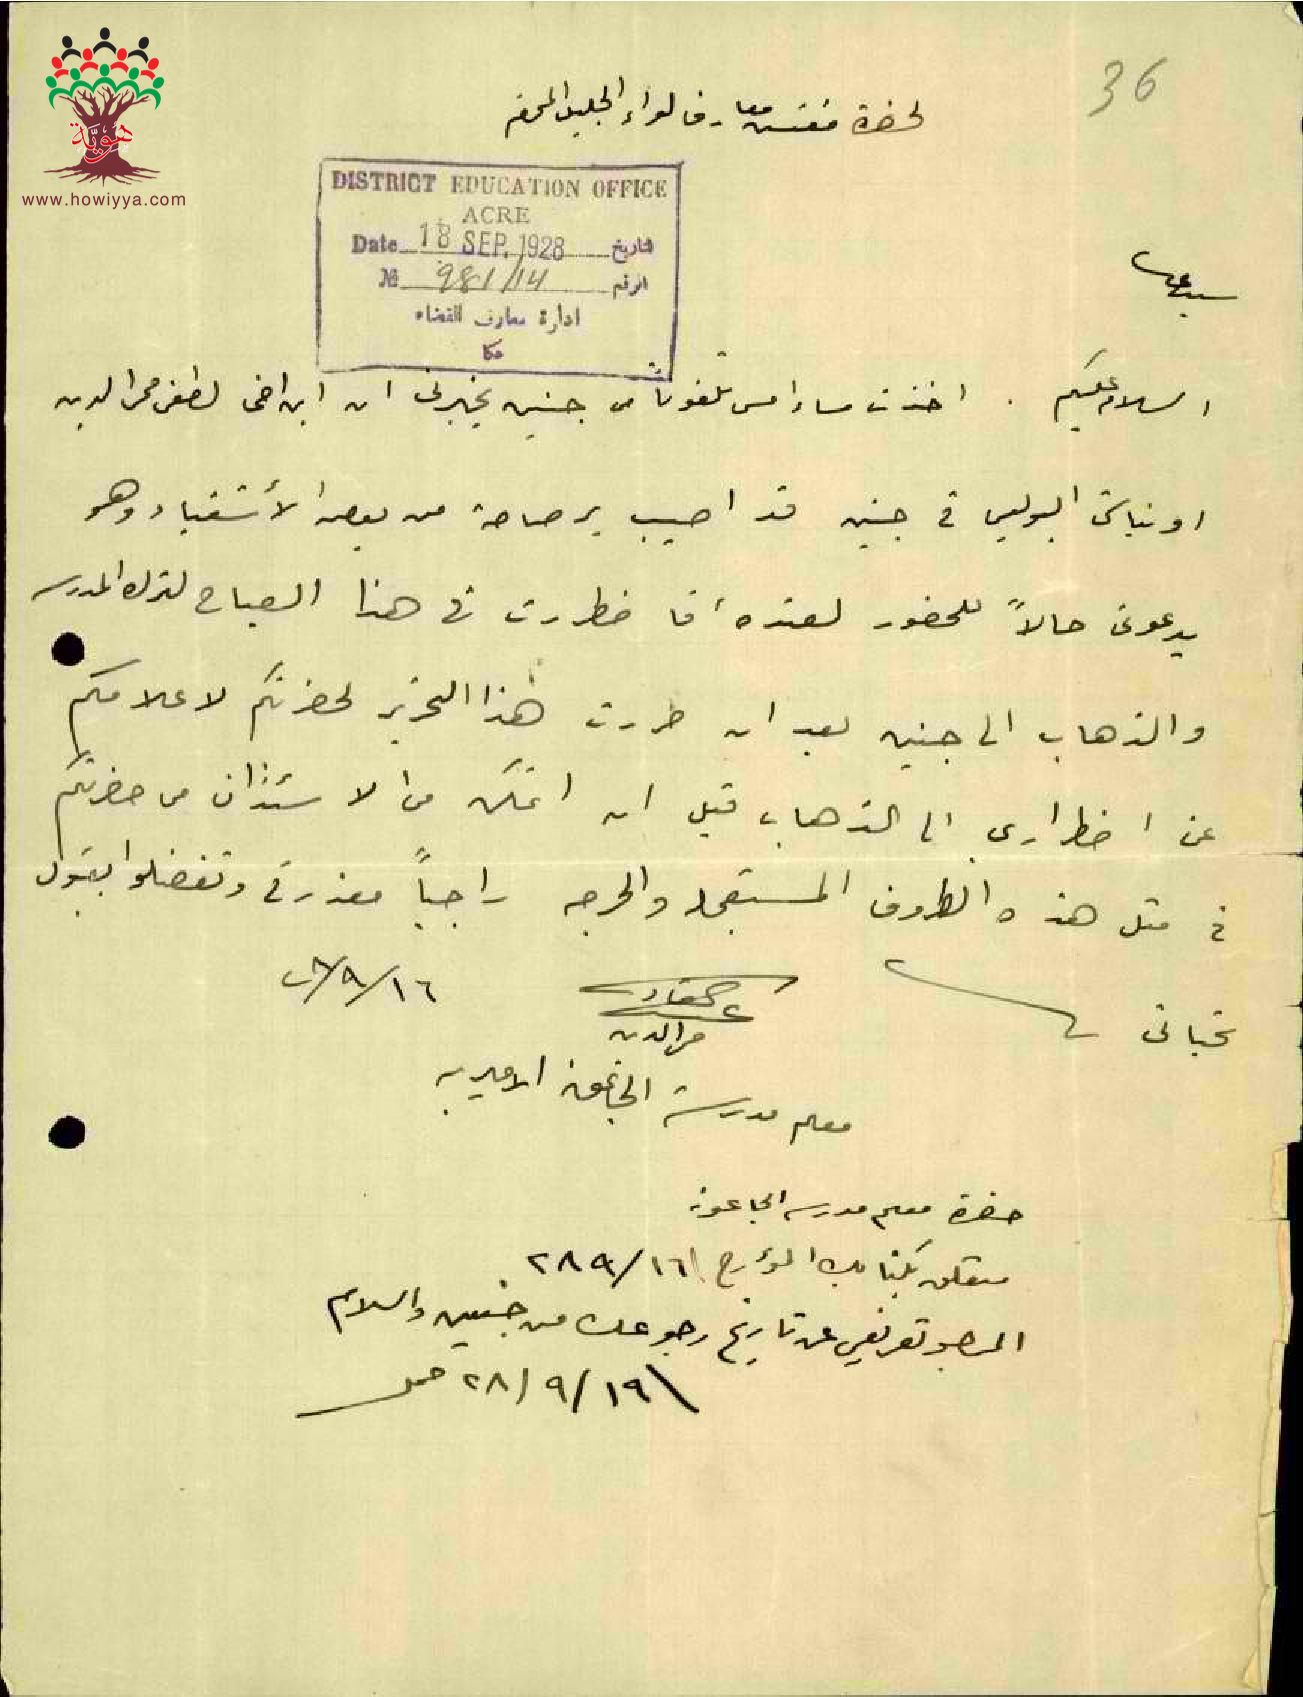 36
هوية
www.howiyya.com
لحضرة مفتش معارف لواء الجليل المحترم
DISTRICT EDUCATION OFFICE
ACRE
Date 18 SEP. 1928 تاريخ
№ 981/14 الرقم
ادارة معارف القضاء
عكا
السلام عليكم . اخذت مساء امس تلفوناً من جنين يخبرني ان ابن اخي لطفي
اونباشي البوليس في جنين قد اصيب برصاصة من بعض الأشقياء وهو
يدعوني حالاً للحضور لعنده فاضطررت في هذا الصباح لترك المدرسه
والذهاب الى جنين بعد ان حررت هذا التحرير لحضرتكم لاعلامكم
عن اضطراري الى الذهاب قبل ان اتمكن من الاستئذان من حضرتكم
في مثل هذه الظروف المستعجله والحرجه راجياً معذرتي وتفضلوا بقبول
تحياتي
١٦/٩/٢٨
معلم مدرسة الجاعونة الاميريه
حضرة معلم مدرسه الجاعونه
متعلق بكتابك المؤرخ ١٦/٩/٢٨
المرجو تعريفي عن تاريخ رجوعك من جنين والسلام
١٩/٩/٢٨